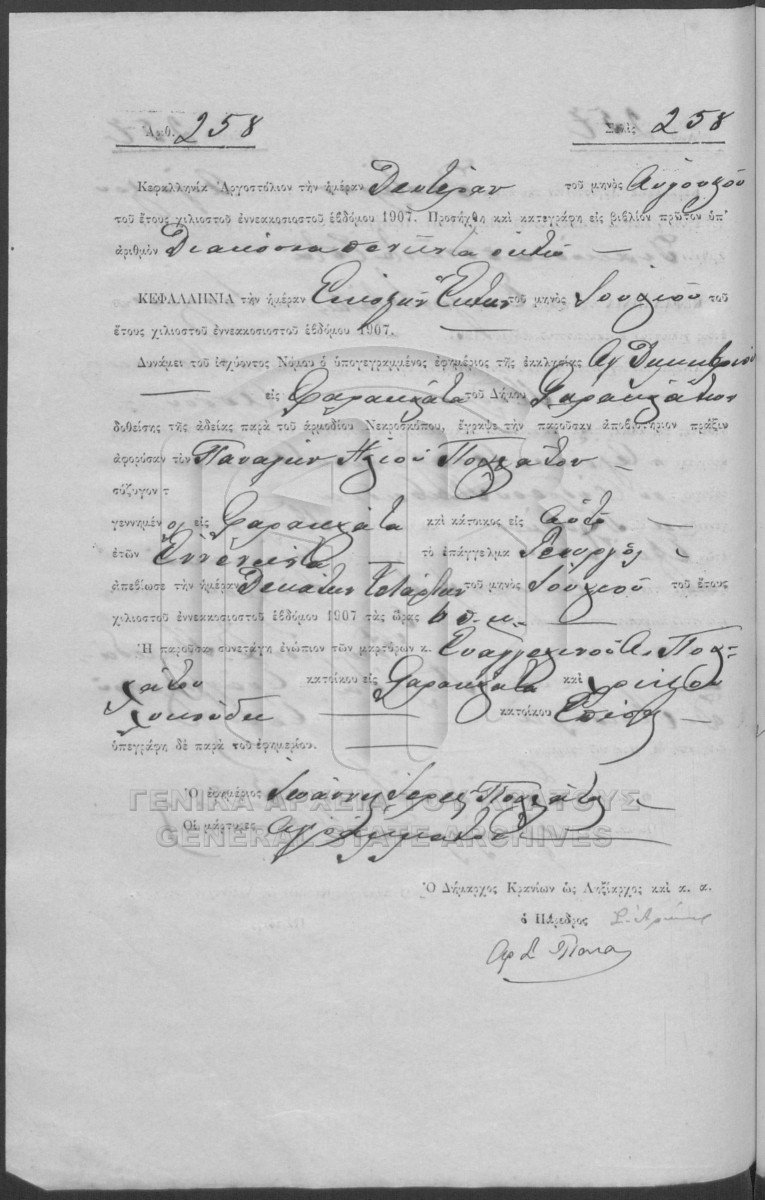 Ἀριθ. 258 Σελὶς 258
Κεφαλληνία Ἀργοστόλιον τὴν ἡμέραν Δευτέραν τοῦ μηνὸς Αὐγούστου
τοῦ ἔτους χιλιοστοῦ ἐννεακοσιοστοῦ ἑβδόμου 1907. Προσήχθη καὶ κατεγράφη εἰς βιβλίον πρῶτον ὑπ'
ἀριθμὸν Διακόσια πενῆντα ὀκτώ —
ΚΕΦΑΛΛΗΝΙΑ τὴν ἡμέραν Εἰκοστὴν Ἕκτην τοῦ μηνὸς Ἰουλίου τοῦ
ἔτους χιλιοστοῦ ἐννεακοσιοστοῦ ἑβδόμου 1907. —
Δυνάμει τοῦ ἰσχύοντος Νόμου ὁ ὑπογεγραμμένος ἐφημέριος τῆς ἐκκλησίας Ἁγ Δημητρίου
— εἰς Φαρακλάτα τοῦ Δήμου
δοθείσης τῆς ἀδείας παρὰ τοῦ ἁρμοδίου Νεκροσκόπου, ἔγραψε τὴν παροῦσαν ἀποβιωτήριον πρᾶξιν
ἀφορῶσαν τὸν Παναγῆν Ἠλιοῦ Πολλάτον —
σύζυγον τ
γεννημέν ος εἰς Φαρακλάτα καὶ κάτοικος εἰς Αὐτό —
ἐτῶν Ἐννενῆντα — τὸ ἐπάγγελμα Γεωργός —
ἀπεβίωσε τὴν ἡμέραν Δεκάτην τετάρτην τοῦ μηνὸς Ἰουλίου τοῦ ἔτους
χιλιοστοῦ ἐννεακοσιοστοῦ ἑβδόμου 1907 τὰς ὥρας 6 π. μ. —
Ἡ παροῦσα συνετάγη ἐνώπιον τῶν μαρτύρων κ. Εὐαγγελινοῦ Πολ-
λάτου κατοίκου εἰς Φαρακλάτα καὶ
— κατοίκου Ἐπίσης —
ὑπεγράφη δὲ παρὰ τοῦ ἐφημερίου. —
Ὁ ἐφημέριος Ἰωάννης Ἱερεὺς Πολλάτος —
Οἱ μάρτυρες ἀγράμματοι —
ΓΕΝΙΚΑ ΑΡΧΕΙΑ ΤΟΥ ΚΡΑΤΟΥΣ
GENERAL STATE ARCHIVES
Ὁ Δήμαρχος Κρανίων ὡς Ληξίαρχος καὶ κ. α.
ὁ Πάρεδρος